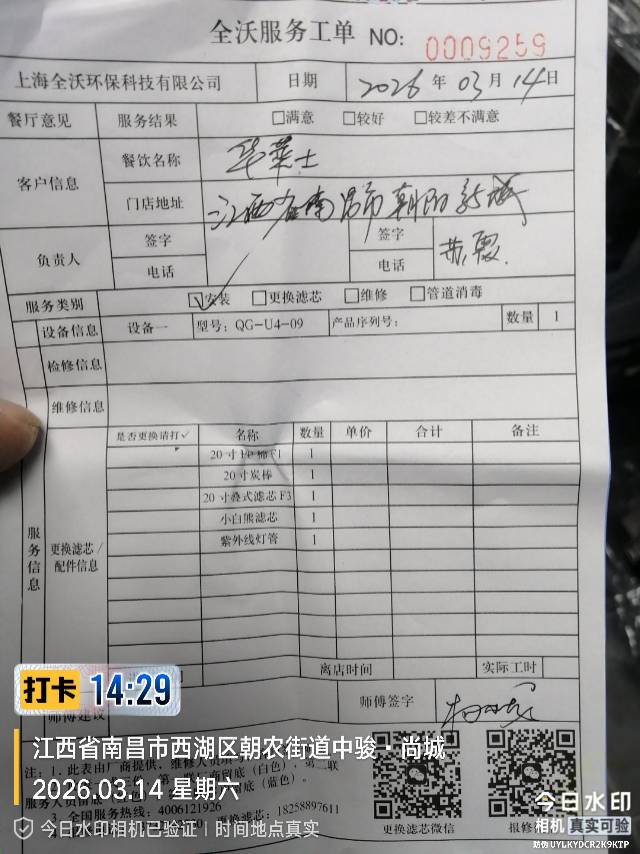 全沃服务工单 NO: 0009259
上海全沃环保科技有限公司 日期 2026年 03月 14日
餐厅意见 服务结果 □满意 □较好 □较差不满意
客户信息 餐饮名称 华莱士
门店地址 江西省南昌市朝阳新城
负责人 签字 签字
电话 电话
服务类别 ☑安装 □更换滤芯 □维修 □管道消毒
设备信息 设备一 型号: QG-U4-09 产品序列号: 数量 1
检修信息
维修信息
服务信息
更换滤芯/配件信息
是否更换请打✓ 名称 数量 单价 合计 备注
20寸PP棉F1 1
20寸炭棒 1
20寸叠式滤芯F3 1
小白熊滤芯 1
紫外线灯管 1
离店时间 实际工时
师傅建议 师傅签字
打卡 14:29
江西省南昌市西湖区朝农街道中骏·尚城
2026.03.14 星期六
3、全国服务热线: 4006121926 18258897611
更换滤芯微信 报修
今日水印相机已验证 时间地点真实
今日水印
相机 真实可验
防伪 UYLKYDCR2K9KTP